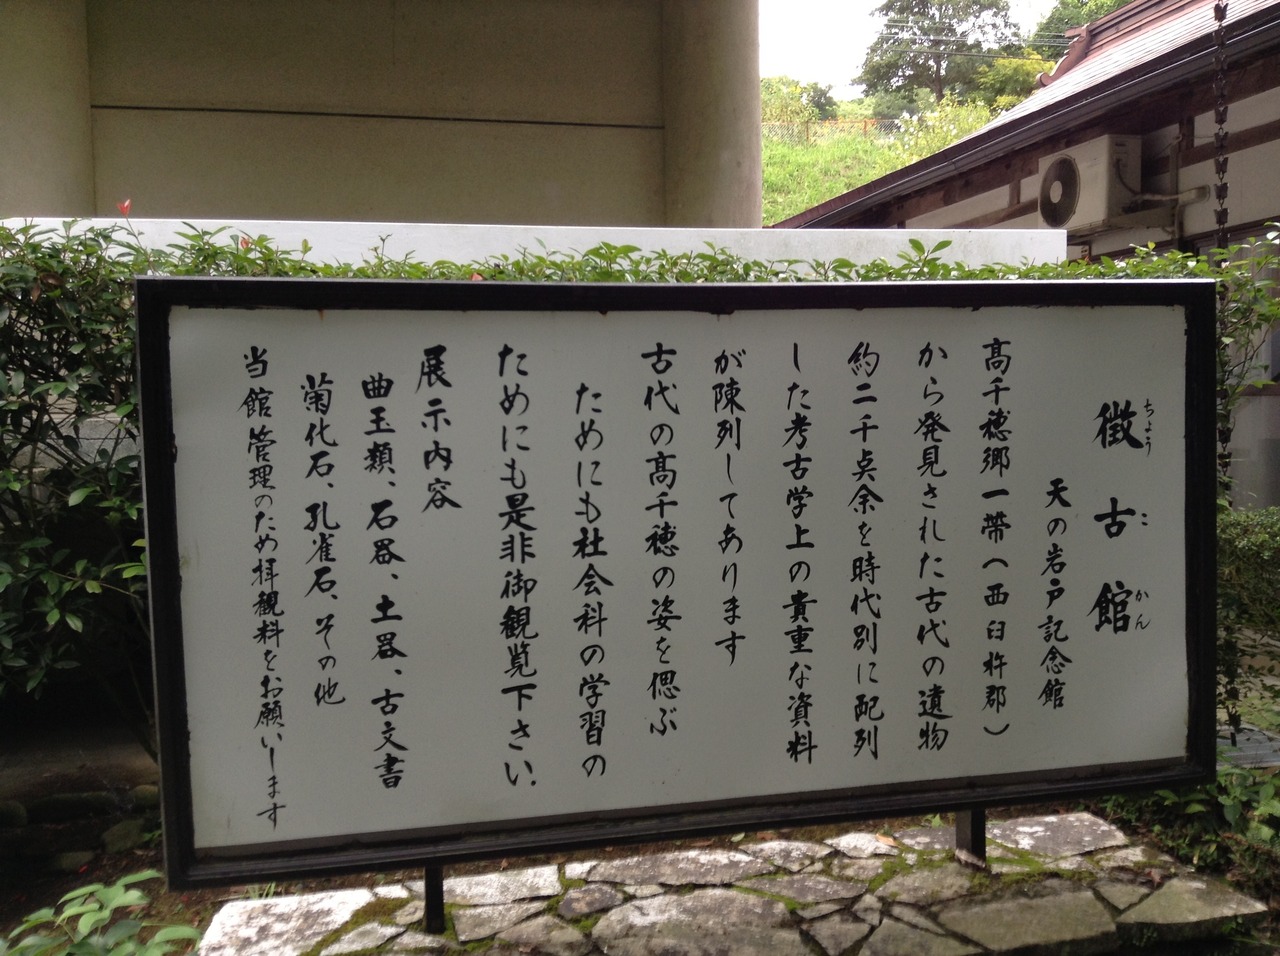 徴古館
ちょうこかん
天の岩戸記念館
高千穂郷一帯(西臼杵郡)
から発見された古代の遺物
約二千点余を時代別に配列
した考古学上の貴重な資料
が陳列してあります
古代の高千穂の姿を偲ぶ
ためにも社会科の学習の
ためにも是非御観覧下さい.
展示内容
曲玉類、石器、土器、古文書
菊化石、孔雀石、その他
当館管理のため拝観料をお願いします